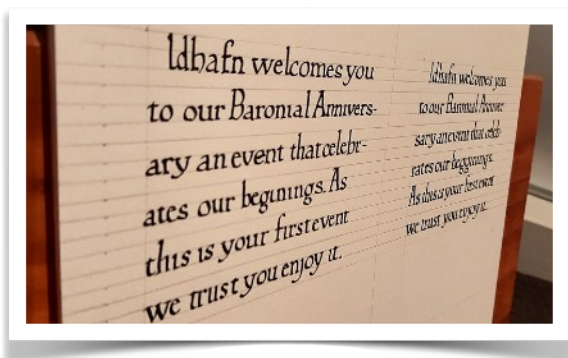 Idhafn welcomes you
to our Baronial Annivers-
ary an event that celebr-
ates our beginings. As
this is your first event
we trust you enjoy it.
Idhafn welcomes you
to our Baronial Anniver
sary an event that celeb-
rates our
As this is your first event
we trust you enjoy it.